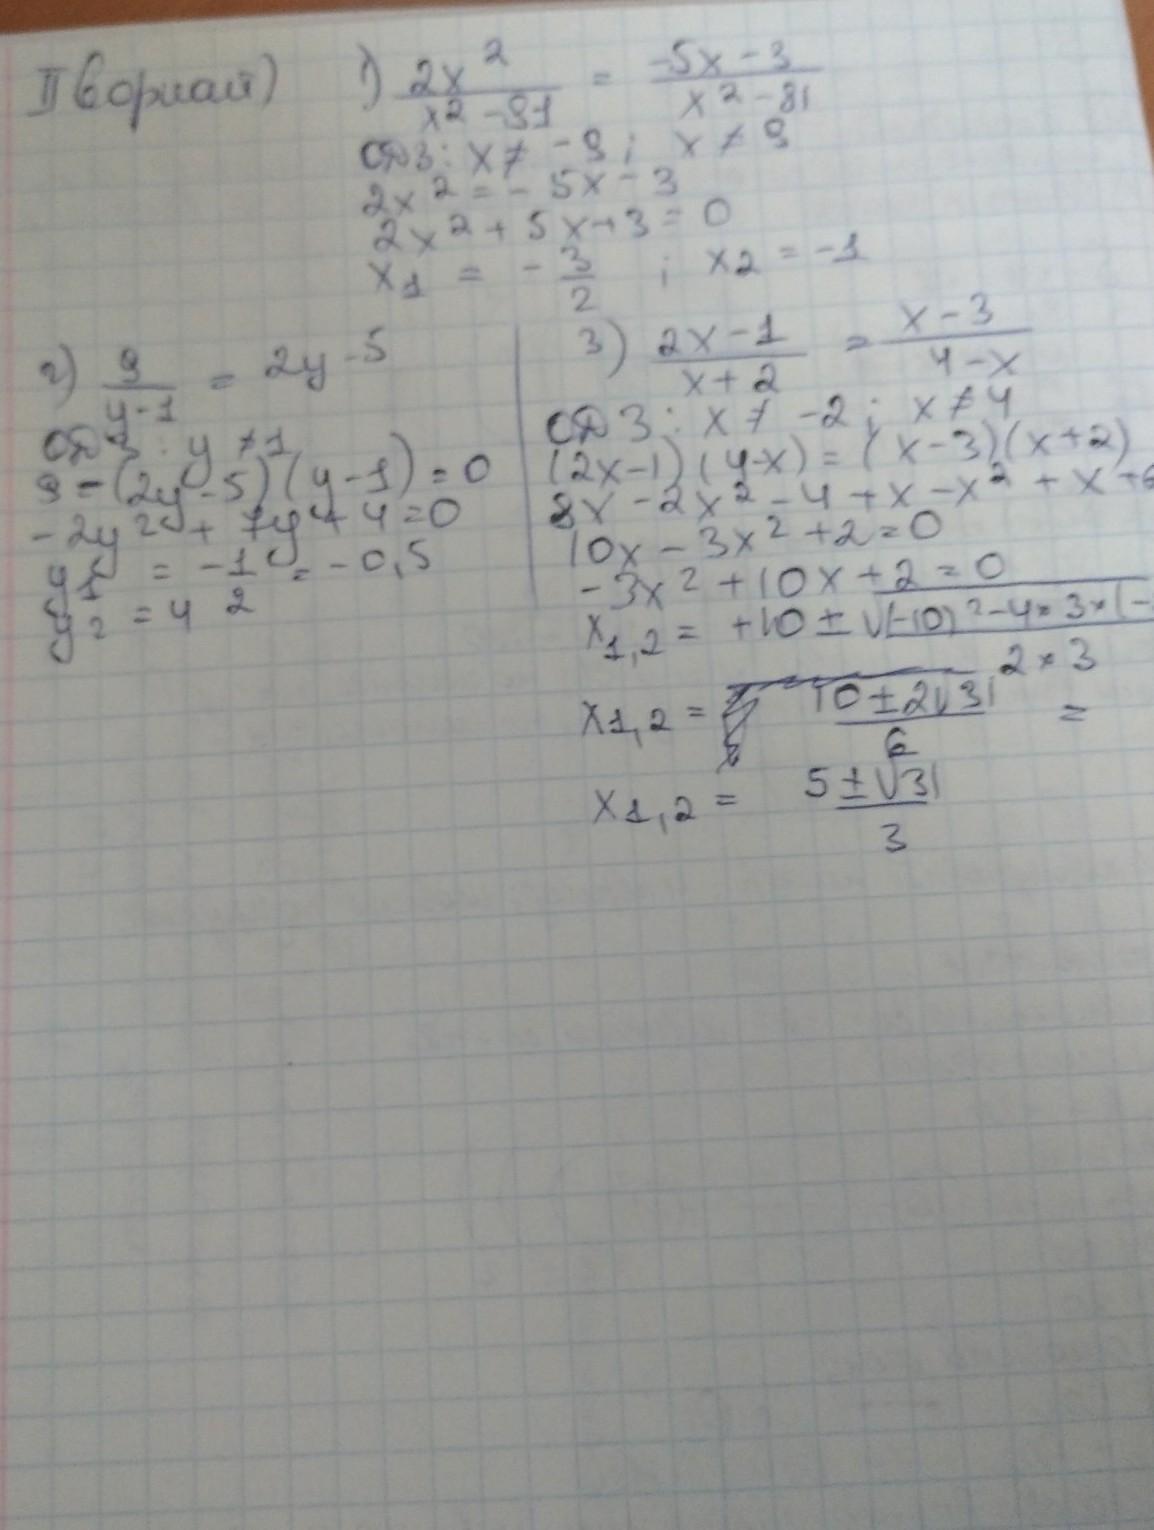 II вариант) 1) 2x²/(x²-81) = (-5x-3)/(x²-81)
ОДЗ: x ≠ -9; x ≠ 9
2x² = -5x-3
2x²+5x+3=0
x₁ = -3/2 ; x₂ = -1
2) 9/(y-1) = 2y-5
ОДЗ: y ≠ 1
9-(2y-5)(y-1)=0
-2y²+7y+4=0
y₁ = -1/2 = -0,5
y₂ = 4
3) (2x-1)/(x+2) = (x-3)/(4-x)
ОДЗ: x ≠ -2; x ≠ 4
(2x-1)(4-x)=(x-3)(x+2)
8x-2x²-4+x-x²+x+6
10x-3x²+2=0
-3x²+10x+2=0
x₁,₂ = +10±√(-10)²-4×3×(-
2×3
x₁,₂ = (10±2√31)/6 =
x₁,₂ = (5±√31)/3